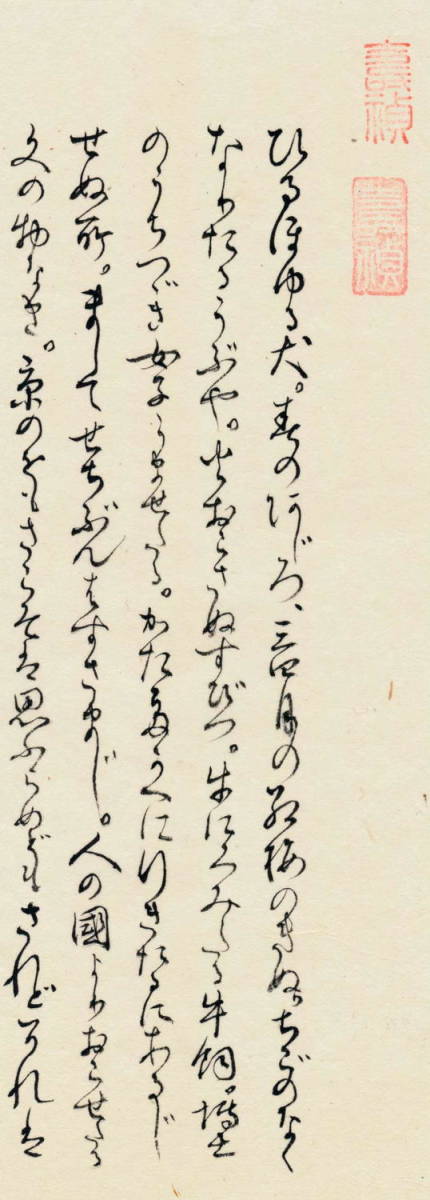 壽禎
壽禎
ひるほゆる犬。春のあじろ、三四月の紅梅のきぬ。ちごのなく
なりたるうぶや。火おこさぬすびつ。牛にくみたる牛飼。博士
のうちつゞき女子うませたる。かたたがへに行きたるにあるじ
せぬ所。まして せちぶんはすさまじ。人の國よりおこせたる
文の物なき。京のをもさこそは思ふらめども されどそれは